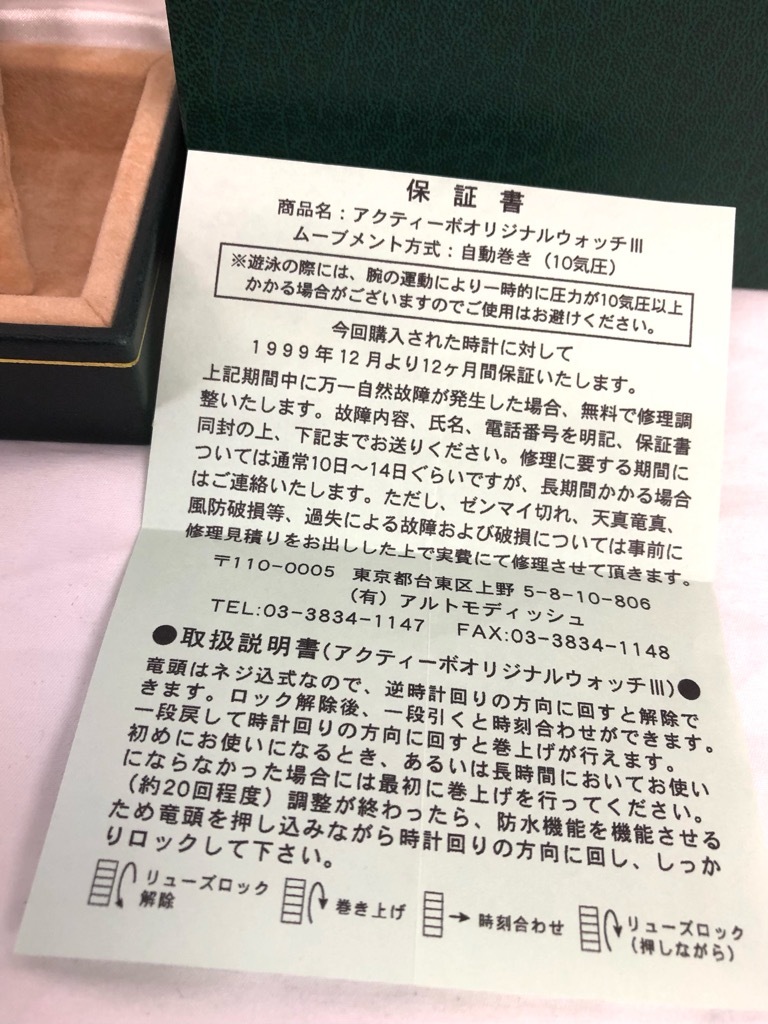 保証書
商品名：アクティーボオリジナルウォッチⅢ
ムーブメント方式：自動巻き（10気圧）
※遊泳の際には、腕の運動により一時的に圧力が10気圧以上
かかる場合がございますのでご使用はお避けください。
今回購入された時計に対して
1999年12月より12ヶ月間保証いたします。
上記期間中に万一自然故障が発生した場合、無料で修理調
整いたします。故障内容、氏名、電話番号を明記、保証書
同封の上、下記までお送りください。修理に要する期間に
ついては通常10日～14日ぐらいですが、長期間かかる場合
はご連絡いたします。ただし、ゼンマイ切れ、天真竜真、
風防破損等、過失による故障および破損については事前に
修理見積りをお出しした上で実費にて修理させて頂きます。
〒110-0005 東京都台東区上野5-8-10-806
（有）アルトモディッシュ
TEL:03-3834-1147 FAX:03-3834-1148
●取扱説明書(アクティーボオリジナルウォッチⅢ)●
竜頭はネジ込式なので、逆時計回りの方向に回すと解除で
きます。ロック解除後、一段引くと時刻合わせができます。
一段戻して時計回りの方向に回すと巻上げが行えます。
初めにお使いになるとき、あるいは長時間においてお使い
にならなかった場合には最初に巻上げを行ってください。
（約20回程度）調整が終わったら、防水機能を機能させる
ため竜頭を押し込みながら時計回りの方向に回し、しっか
りロックして下さい。
リューズロック
解除
巻き上げ
→時刻合わせ
リューズロック
（押しながら）